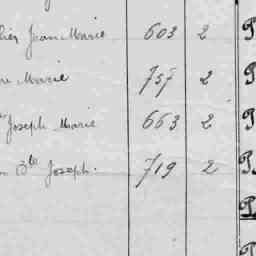 Jean Marie 603 2 P
Marie 757 2 P
Joseph Marie 663 2 P
Bte Joseph. 719 2 P
P
P